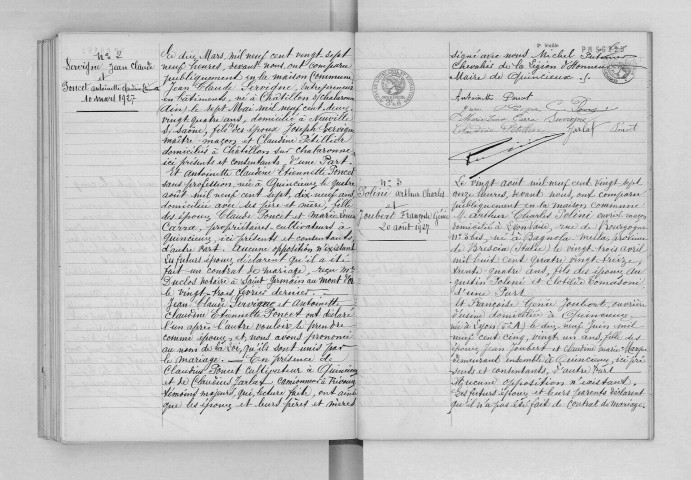 N° 2
Servigne Jean Claude
et
Poncet Antoinette Claudine Etiennette
10 mars 1927
Le dix Mars mil neuf cent vingt sept
neuf heures, devant nous, ont comparu
publiquement en la maison Commune
Jean Claude Servigne, entrepreneur
en bâtiments, né à Châtillon s/chalaronne
(Ain) le sept Mai mil neuf cent deux,
vingt quatre ans, domicilié à Neuville
s. saône, fils des époux Joseph Servigne
maître maçon et Claudine Petillier
domiciliés à Châtillon sur Chalaronne,
ici présents et consentants d'une Part.
Et Antoinette Claudine Etiennette Poncet
sans profession, née à Quincieux le quatre
août mil neuf cent sept, dix neuf ans
domiciliée avec ses père et mère, fille
des époux Claude Poncet et Marie Louise
Carra, propriétaires cultivateurs à
Quincieux, ici présents et consentants
d'autre Part. Aucune opposition n'existant
les futurs époux déclarent qu'il a été
fait un contrat de mariage, reçu Me
Duclos notaire à Saint Germain au mont d'or
le vingt-trois février dernier.
Jean Claude Servigne et Antoinette
Claudine Etiennette Poncet ont déclaré
l'un après l'autre vouloir se prendre
comme époux, et nous avons prononcé
au nom de la Loi, qu'ils sont unis par
le mariage. En présence de
Claudius Poncet cultivateur à Quincieux
et de Claudius Jarlat camionneur à Trévoux,
témoins majeurs, qui, lecture faite, ont ainsi
que les époux et leurs pères et mères
signé avec nous Michel
Chevalier de la Légion d'Honneur
Maire de Quincieux
Antoinette Poncet
Servigne
Jarlat Poncet
N° 3
Poléni Arthur Charles
et
Joubert Françoise Génie
20 août 1927
Le vingt août mil neuf cent vingt sept
onze heures, devant nous, ont comparu
publiquement en la maison commune
M. Arthur Charles Poléni ouvrier maçon
domicilié à, rue de Bourgogne
né à Bagnolo Mella, province
de Brescia (Italie) le vingt trois avril
mil huit cent quatre vingt treize,
trente quatre ans, fils des époux Au-
gustin Poléni et Clotilde Comadoni
d'une Part
et Françoise Génie Joubert, ouvrière
d'usine domiciliée à Quincieux,
née à Lyon le dix neuf Juin mil
neuf cent cinq, vingt un ans, fille des
époux Jean Joubert et Claudine Marie
demeurant ensemble à Quincieux, ici pré-
sents et consentants, d'autre Part
Aucune opposition n'existant.
Les futurs époux et leurs parents déclarent
qu'il n'a pas été fait de contrat de mariage.